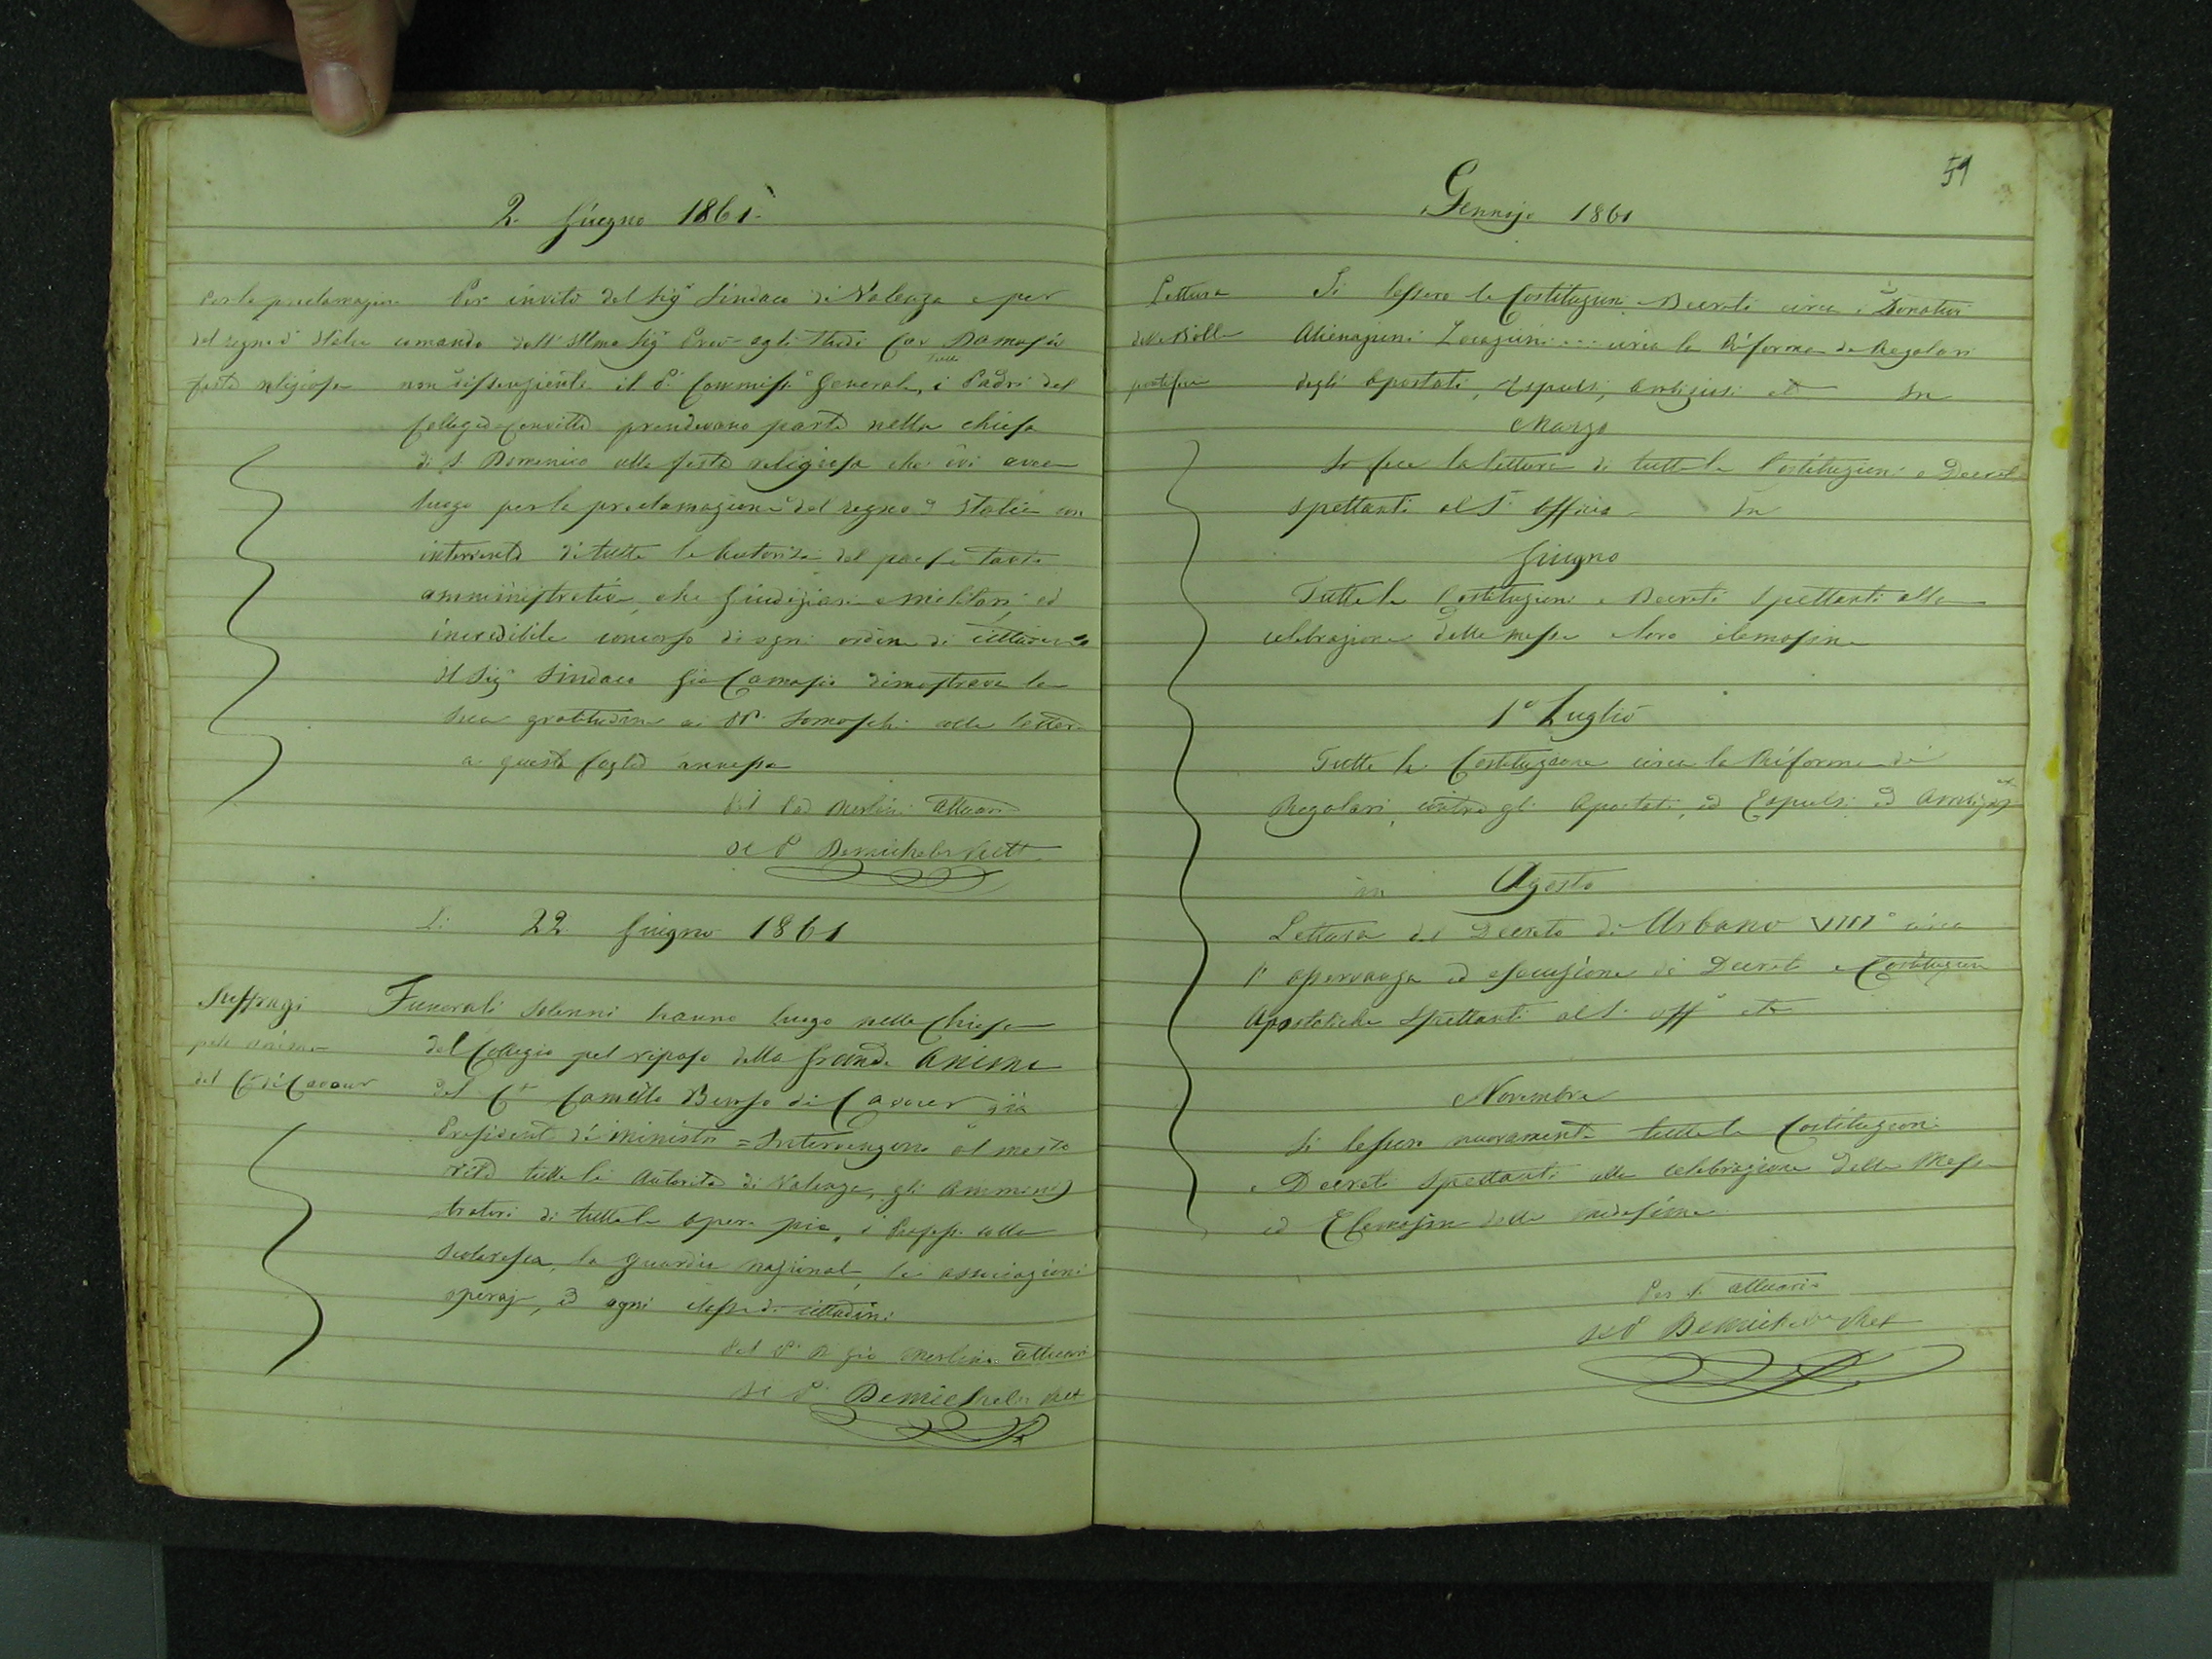 2. Giugno 1861.
Per la proclamazione
del regno d' Italia
festa religiosa
Per invito del Sig.r Sindaco di Valenza e per
comando dell' Ill.mo Sig.r Prov. agli Studi Cav Damasio
non dissenziente il P. Commiss.o Generale, i Padri del
Collegio Convitto prendevano parte nella chiesa
di S. Domenico alla festa religiosa che ivi avea
luogo per la proclamazione del regno d' Italia con
intervento di tutte le Autorità del paese tanto
amministrative, che giudiziarie e militari, ed
incredibile concorso di ogni ordine di cittadini
Il Sig.r Sindaco Gio Camasio dimostrava la
sua gratitudine ai PP. Somaschi colla lettera
a questo foglio annessa
Pel Pad Merlini Attuario
Il P. Demichelis Rett.
Li 22. Giugno 1861
Suffragi
pell' anima
del C.te di Cavour
Funerali solenni hanno luogo nella Chiesa
del Collegio pel riposo della grande Anima
del C.te Camillo Benso di Cavour già
Presidente di Ministri = Intervengono al mesto
rito tutte le Autorità di Valenza, gli Amminis
tratori di tutte le opere pie, i Profess. colla
scolaresca, la guardia nazionale, le associazioni
operaje, ed ogni classe di cittadini
Pel P. D Gio Merlini Attuario
Il P. Demichelis Rett
51
Gennajo 1861
Lettura
delle Bolle
pontificie
Si lessero le Costituzioni e Decreti circa i Donativi
Alienazioni Locazioni .... circa la Riforma de Regolari
degli Apostati, Espulsi, ed In
Marzo
Si fece la lettura di tutte le Costituzioni e Decreti
spettanti al S. Officio - In
Giugno
Tutte le Costituzioni e Decreti Spettanti alla
celebrazione delle messe e loro elemosine
1.o Luglio
Tutte le Costituzione circa la Riforma dei
Regolari, contro gli Apostati, ed Espulsi ed
in Agosto
Lettura del Decreto di Urbano VIII° circa
l' osservanza ed esecuzione di Decreti e Costituzioni
Apostoliche Spettanti al S. Off.o etc
Novembre
Si lessero nuovamente tutte le Costituzioni
e Decreti spettanti alla celebrazione delle Messe
ed Elemosine delle medesime
Per l' Attuario
Il P Demichelis Ret